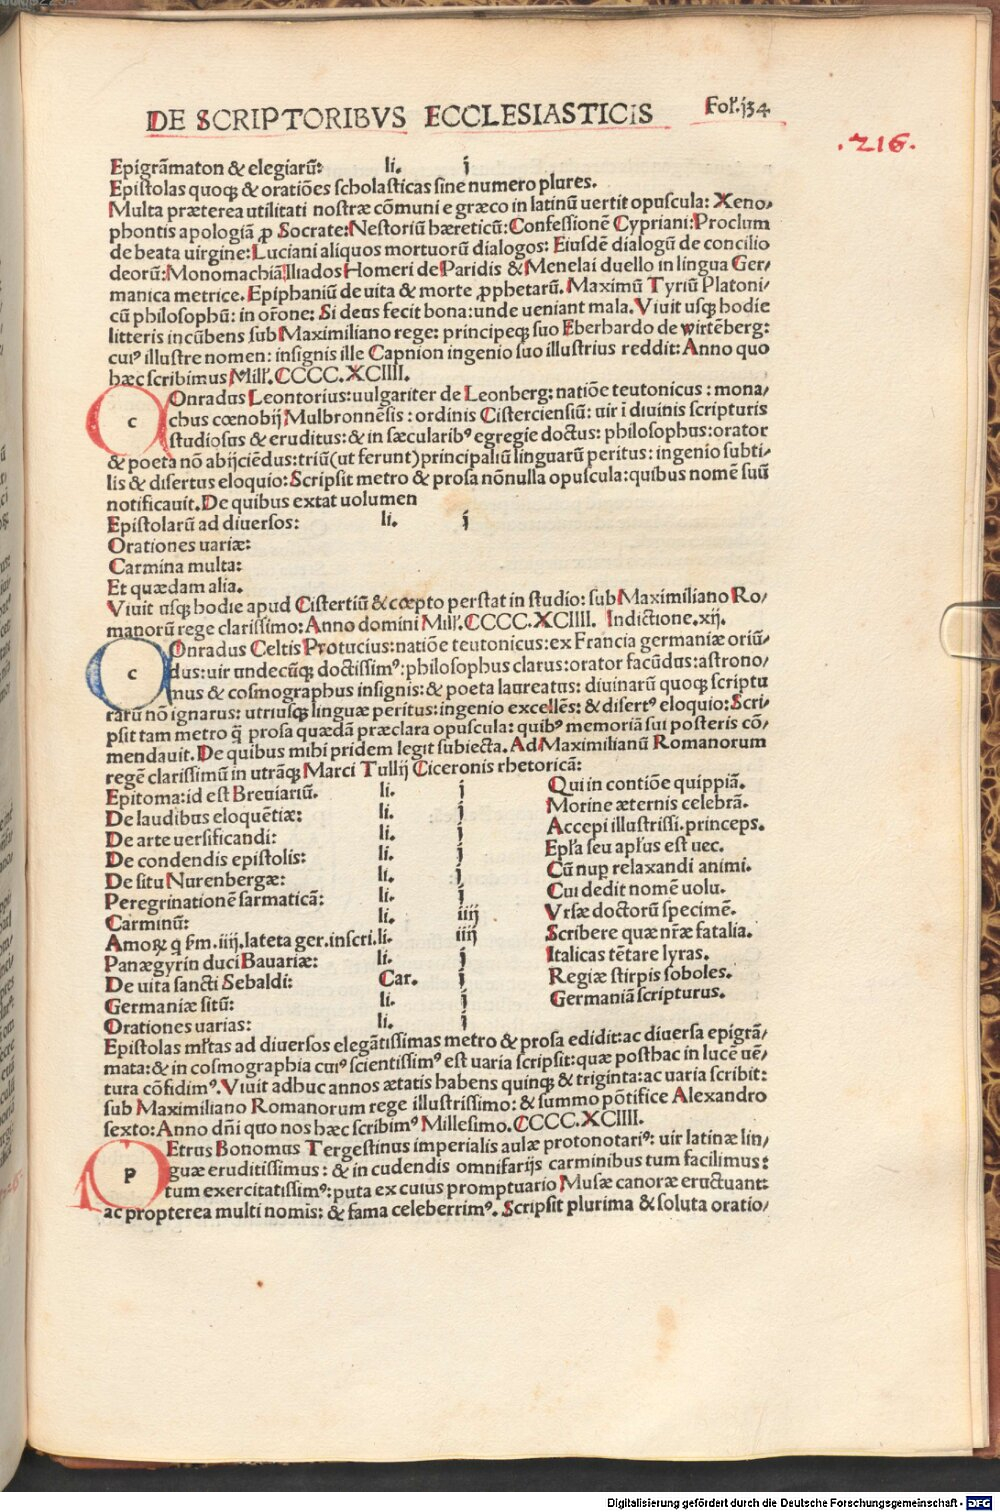 DE SCRIPTORIBVS ECCLESIASTICIS Foł. j34
.216.
Epigrãmaton & elegiarũ: li. j
Epistolas quoqꝫ & oratiões scholasticas sine numero plures.
Multa præterea utilitati nostræ cõmuni e græco in latinũ uertit opuscula: Xeno-
phontis apologiã ꝓ Socrate: Nestoriũ hæreticũ: Confessionẽ Cypriani: Proclum
de beata uirgine: Luciani aliquos mortuorũ dialogos: Eiusdẽ dialogũ de concilio
deorũ: Monomachiã Iliados Homeri de Paridis & Menelai duello in lingua Ger/
manica metrice. Epiphaniũ de uita & morte ꝓphetarũ. Maximũ Tyriũ Platoni/
cũ philosophũ: in or̃one: Si deus fecit bona: unde ueniant mala. Viuit usqꝫ hodie
litteris incũbens sub Maximiliano rege: principeqꝫ suo Eberhardo de wirtẽberg:
cuiꝰ illustre nomen: insignis ille Capnion ingenio suo illustrius reddit: Anno quo
hæc scribimus Mill'. CCCC. XCIIII.
c Onradus Leontorius: uulgariter de Leonberg: natiõe teutonicus: mona/
chus cœnobij Mulbronnẽsis: ordinis Cisterciensiũ: uir i diuinis scripturis
studiosus & eruditus: & in sæcularibꝰ egregie doctus: philosophus: orator
& poeta nõ abijciẽdus: triũ (ut ferunt) principaliũ linguarũ peritus: ingenio subti/
lis & disertus eloquio: Scripsit metro & prosa nõnulla opuscula: quibus nomẽ suũ
notificauit. De quibus extat uolumen
Epistolarũ ad diuersos: li. j
Orationes uariæ:
Carmina multa:
Et quædam alia.
Viuit usqꝫ hodie apud Cistertiũ & cœpto perstat in studio: sub Maximiliano Ro/
manorũ rege clarissimo: Anno domini Mill'. CCCC. XCIIII. Indictione. xij.
c Onradus Celtis Protucius: natiõe teutonicus: ex Francia germaniæ oriũ/
dus: uir undecũqꝫ doctissimꝰ: philosophus clarus: orator facũdus: astrono/
mus & cosmographus insignis: & poeta laureatus: diuinarũ quoqꝫ scriptu
rarũ nõ ignarus: utriusqꝫ linguæ peritus: ingenio excellẽs: & disertꝰ eloquio: Scri/
psit tam metro q̃ prosa quædã præclara opuscula: quibꝰ memoriã sui posteris cõ/
mendauit. De quibus mihi pridem legit subiecta. Ad Maximilianũ Romanorum
regẽ clarissimũ in utrãqꝫ Marci Tullij Ciceronis rhetoricã:
Epitoma: id est Breuiariũ. li. j Qui in contiõe quippiã.
De laudibus eloquẽtiæ: li. j Morine æternis celebrã.
De arte uersificandi: li. j Accepi illustrissi. princeps.
De condendis epistolis: li. j Epl'a seu apl'us est uec.
De situ Nurenbergæ: li. j Cũ nup̱ relaxandi animi.
Peregrinationẽ sarmaticã: li. j Cui dedit nomẽ uolu.
Carminũ: li. iiij Vrsæ doctorũ specimẽ.
Amoꝝ q̨ fm̃. iiij. lateta ger. inscri. li. iiij Scribere quæ nr̃æ fatalia.
Panægyrin duci Bauariæ: li. j Italicas tẽtare lyras.
De uita sancti Sebaldi: Car. j Regiæ stirpis soboles.
Germaniæ sitũ: li. j Germaniã scripturus.
Orationes uarias: li. j
Epistolas ml'tas ad diuersos elegãtissimas metro & prosa edidit: ac diuersa epigrã/
mata: & in cosmographia cuiꝰ scientissimꝰ est uaria scripsit: quæ posthac in lucẽ uẽ/
tura cõfidimꝰ. Viuit adhuc annos ætatis habens quinqꝫ & triginta: ac uaria scribit:
sub Maximiliano Romanorum rege illustrissimo: & summo põtifice Alexandro
sexto: Anno dñi quo nos hæc scribimꝰ Millesimo. CCCC. XCIIII.
p Etrus Bonomus Tergestinus imperialis aulæ protonotariꝰ: uir latinæ lin/
guæ eruditissimus: & in cudendis omnifarijs carminibus tum facilimus:
tum exercitatissimꝰ: puta ex cuius promptuario Musæ canoræ eructuant:
ac propterea multi nomis: & fama celeberrimꝰ. Scripsit plurima & soluta oratio/
Digitalisierung gefördert durch die Deutsche Forschungsgemeinschaft - DFG